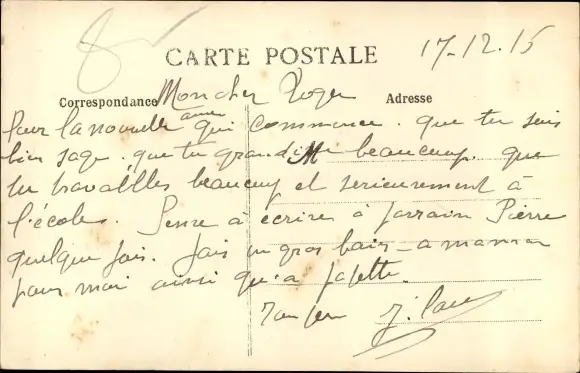 CARTE POSTALE
17-12.15
Correspondance Mon cher Roger
Adresse
Pour la nouvelle année qui commence. que tu sois
bien sage. que tu grandisse beaucoup. que
tu travailles beaucoup et serieusement à
l'école. Pense à écrire à parrain Pierre
quelque fois. fais un gros bais - a maman
pour moi ainsi qu'a
Ton père